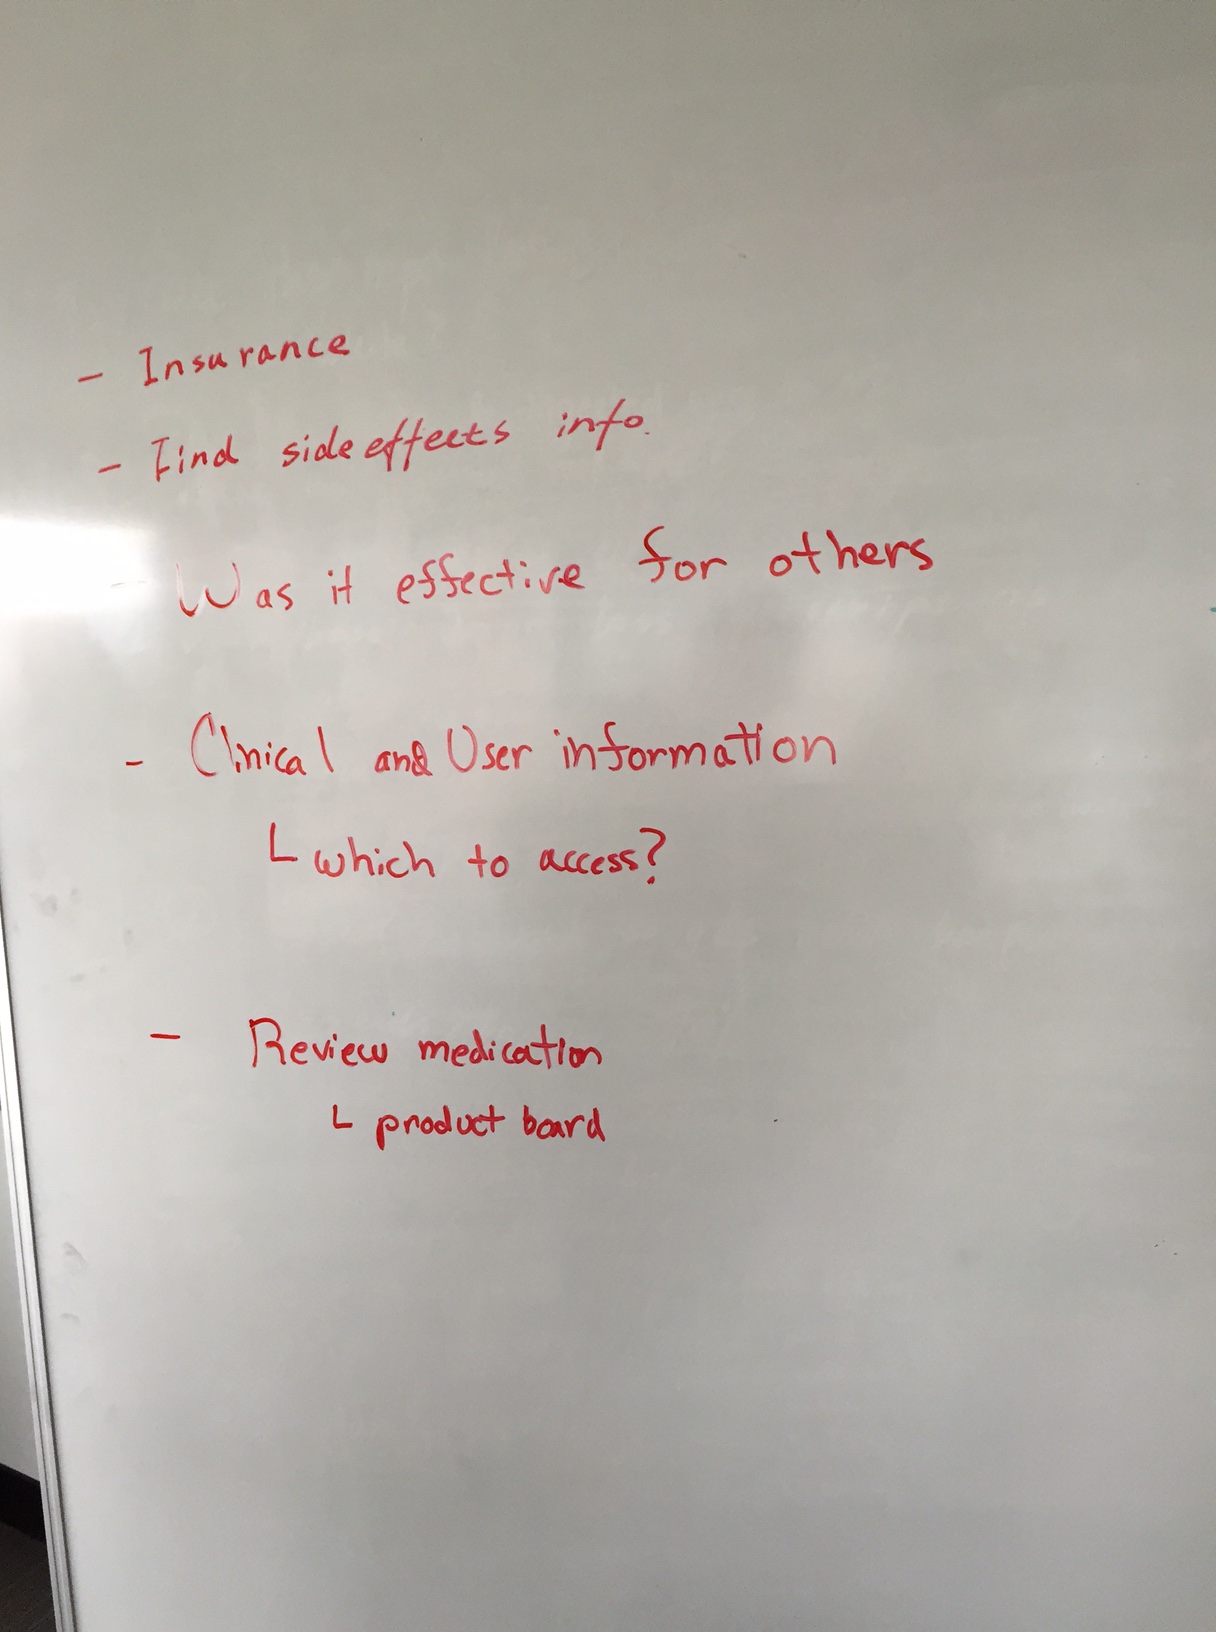 - Insurance
- Find side effects info.
- Was it effective for others
- Clinical and User information
└ which to access?
- Review medication
└ product board